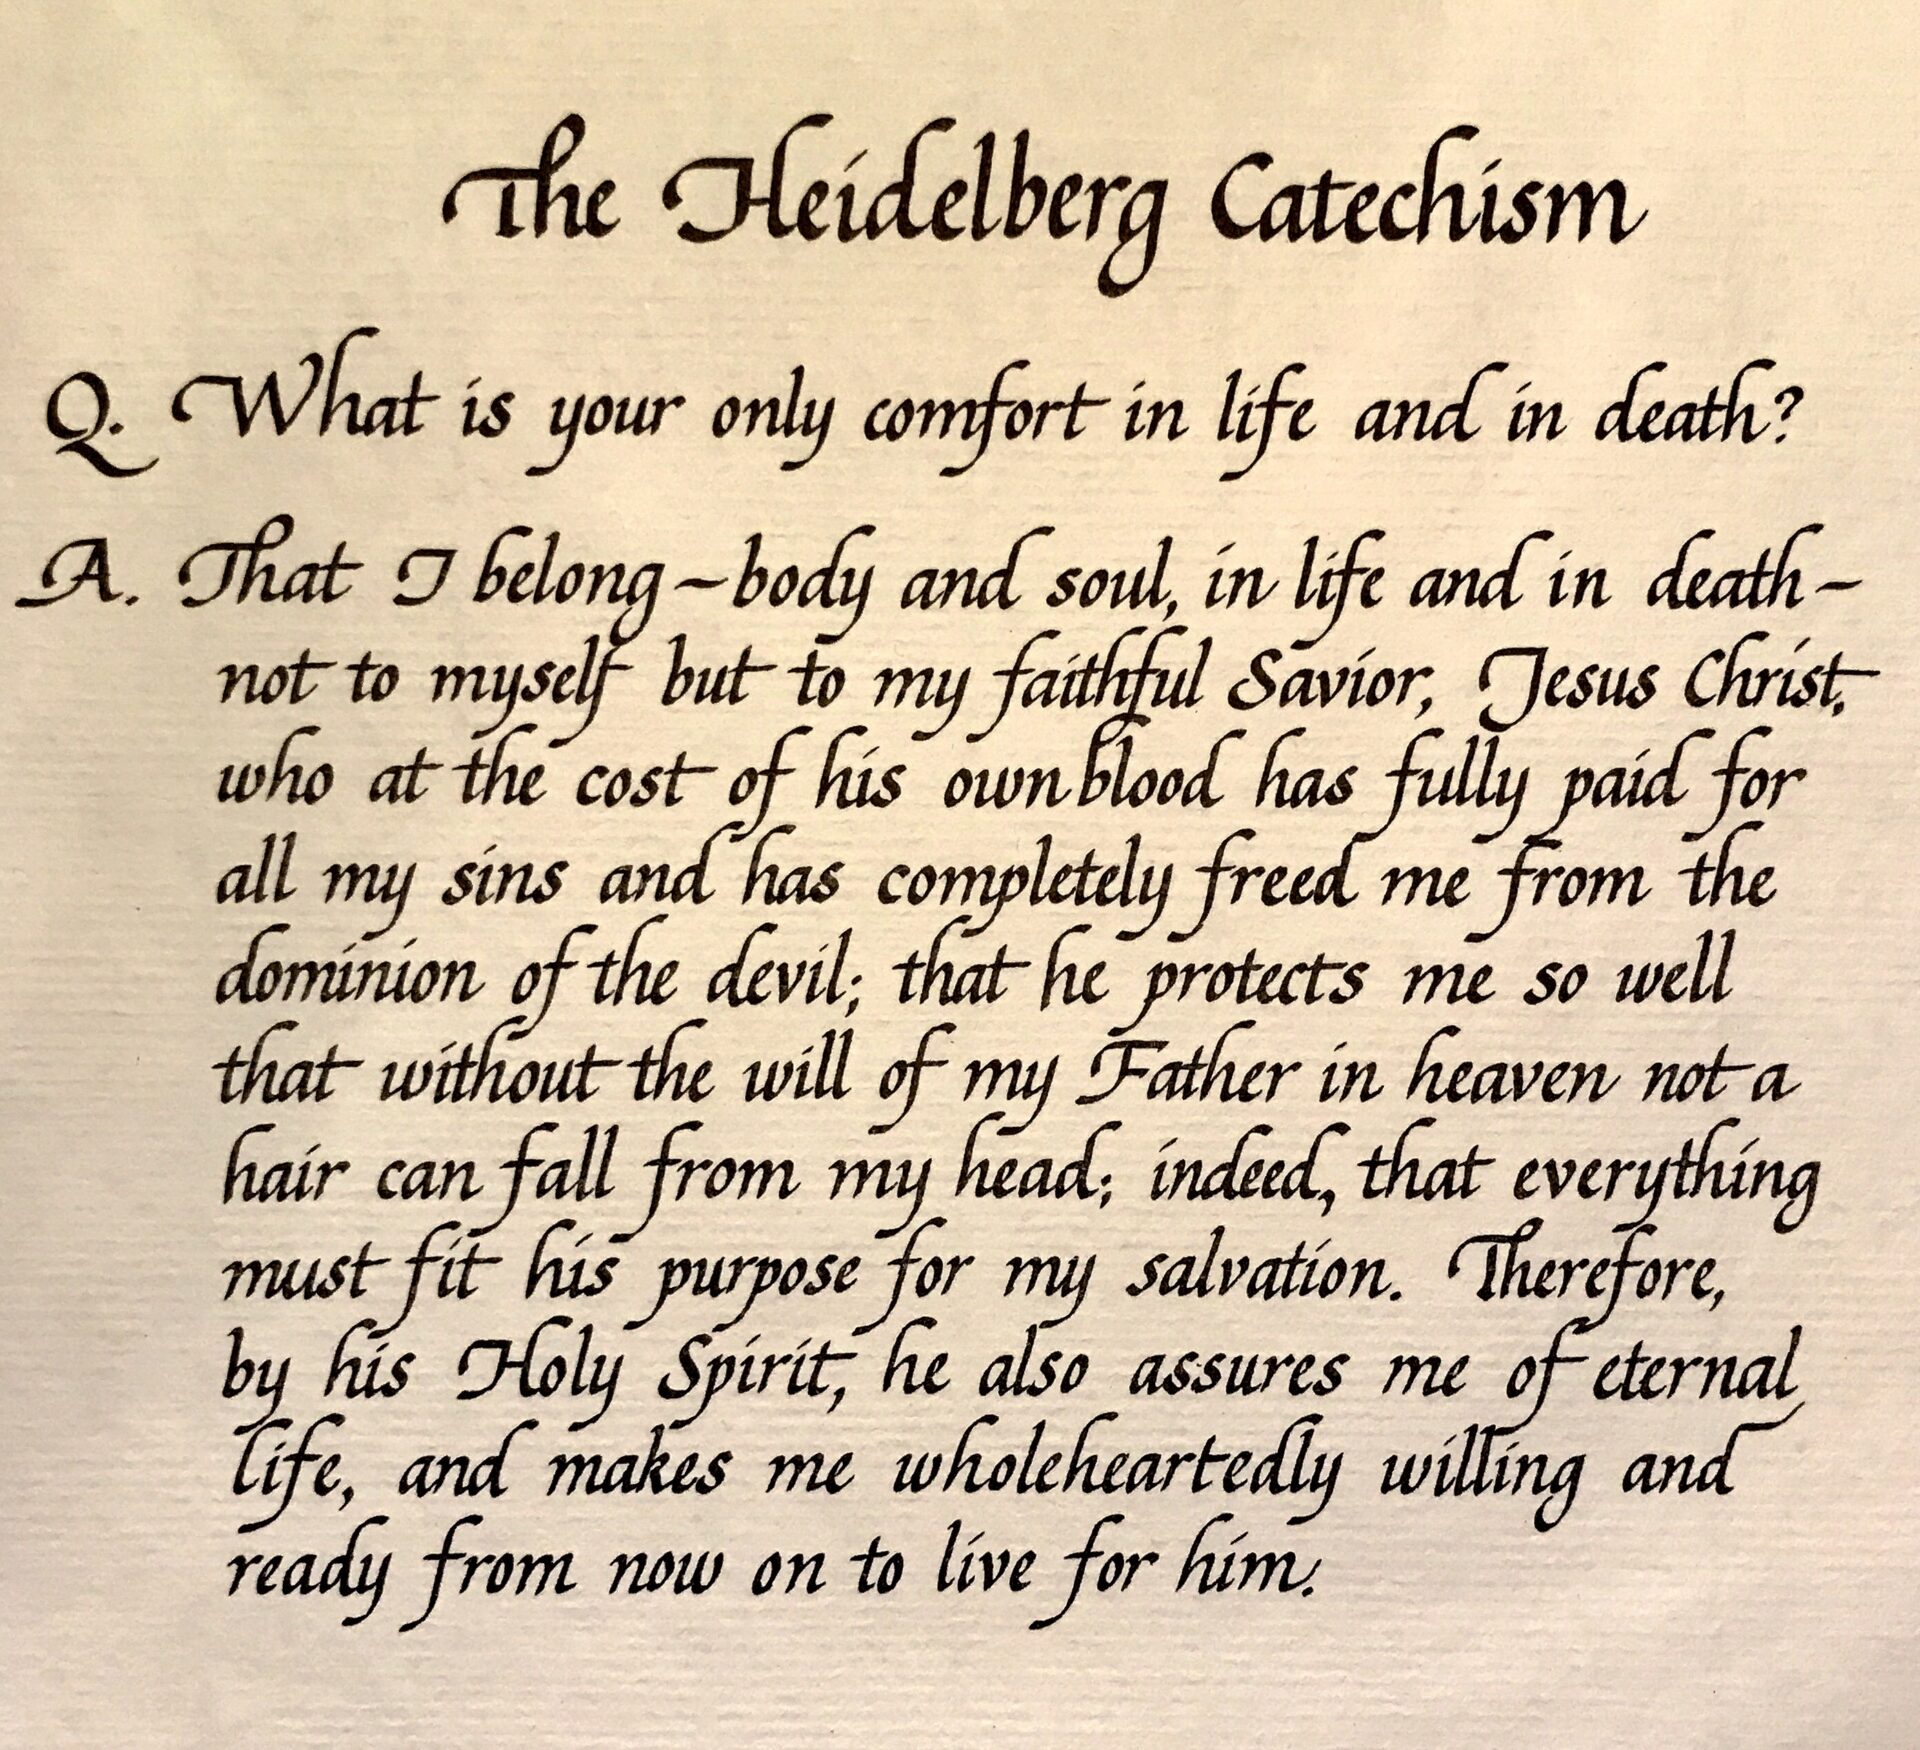 The Heidelberg Catechism
Q. What is your only comfort in life and in death?
A. That I belong – body and soul, in life and in death –
not to myself but to my faithful Savior, Jesus Christ,
who at the cost of his own blood has fully paid for
all my sins and has completely freed me from the
dominion of the devil; that he protects me so well
that without the will of my Father in heaven not a
hair can fall from my head; indeed, that everything
must fit his purpose for my salvation. Therefore,
by his Holy Spirit, he also assures me of eternal
life, and makes me wholeheartedly willing and
ready from now on to live for him.